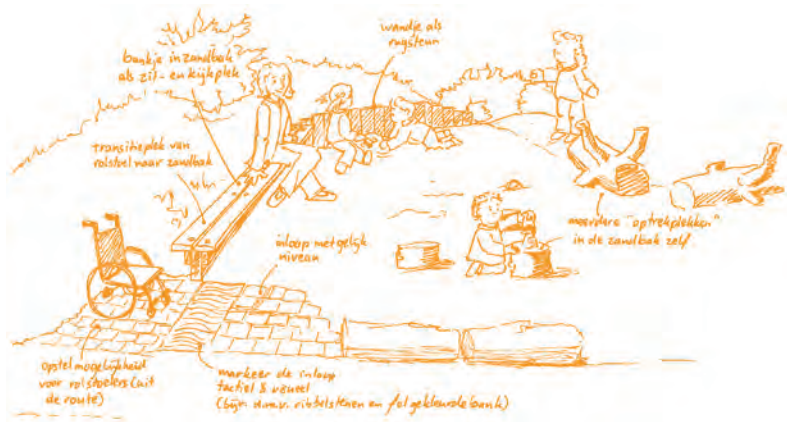 wandje als
rugsteun
bankje in zandbak
als zit- en kijkplek
transitieplek van
rolstoel naar zandbak
inloop met gelijk
niveau
meerdere "optrekplekken"
in de zandbak zelf.
opstel mogelijkheid
voor rolstoelers (uit
de route)
markeer de inloop
tactiel & visueel
(bijv. d.m.v. ribbelstenen en felgekleurde bank)